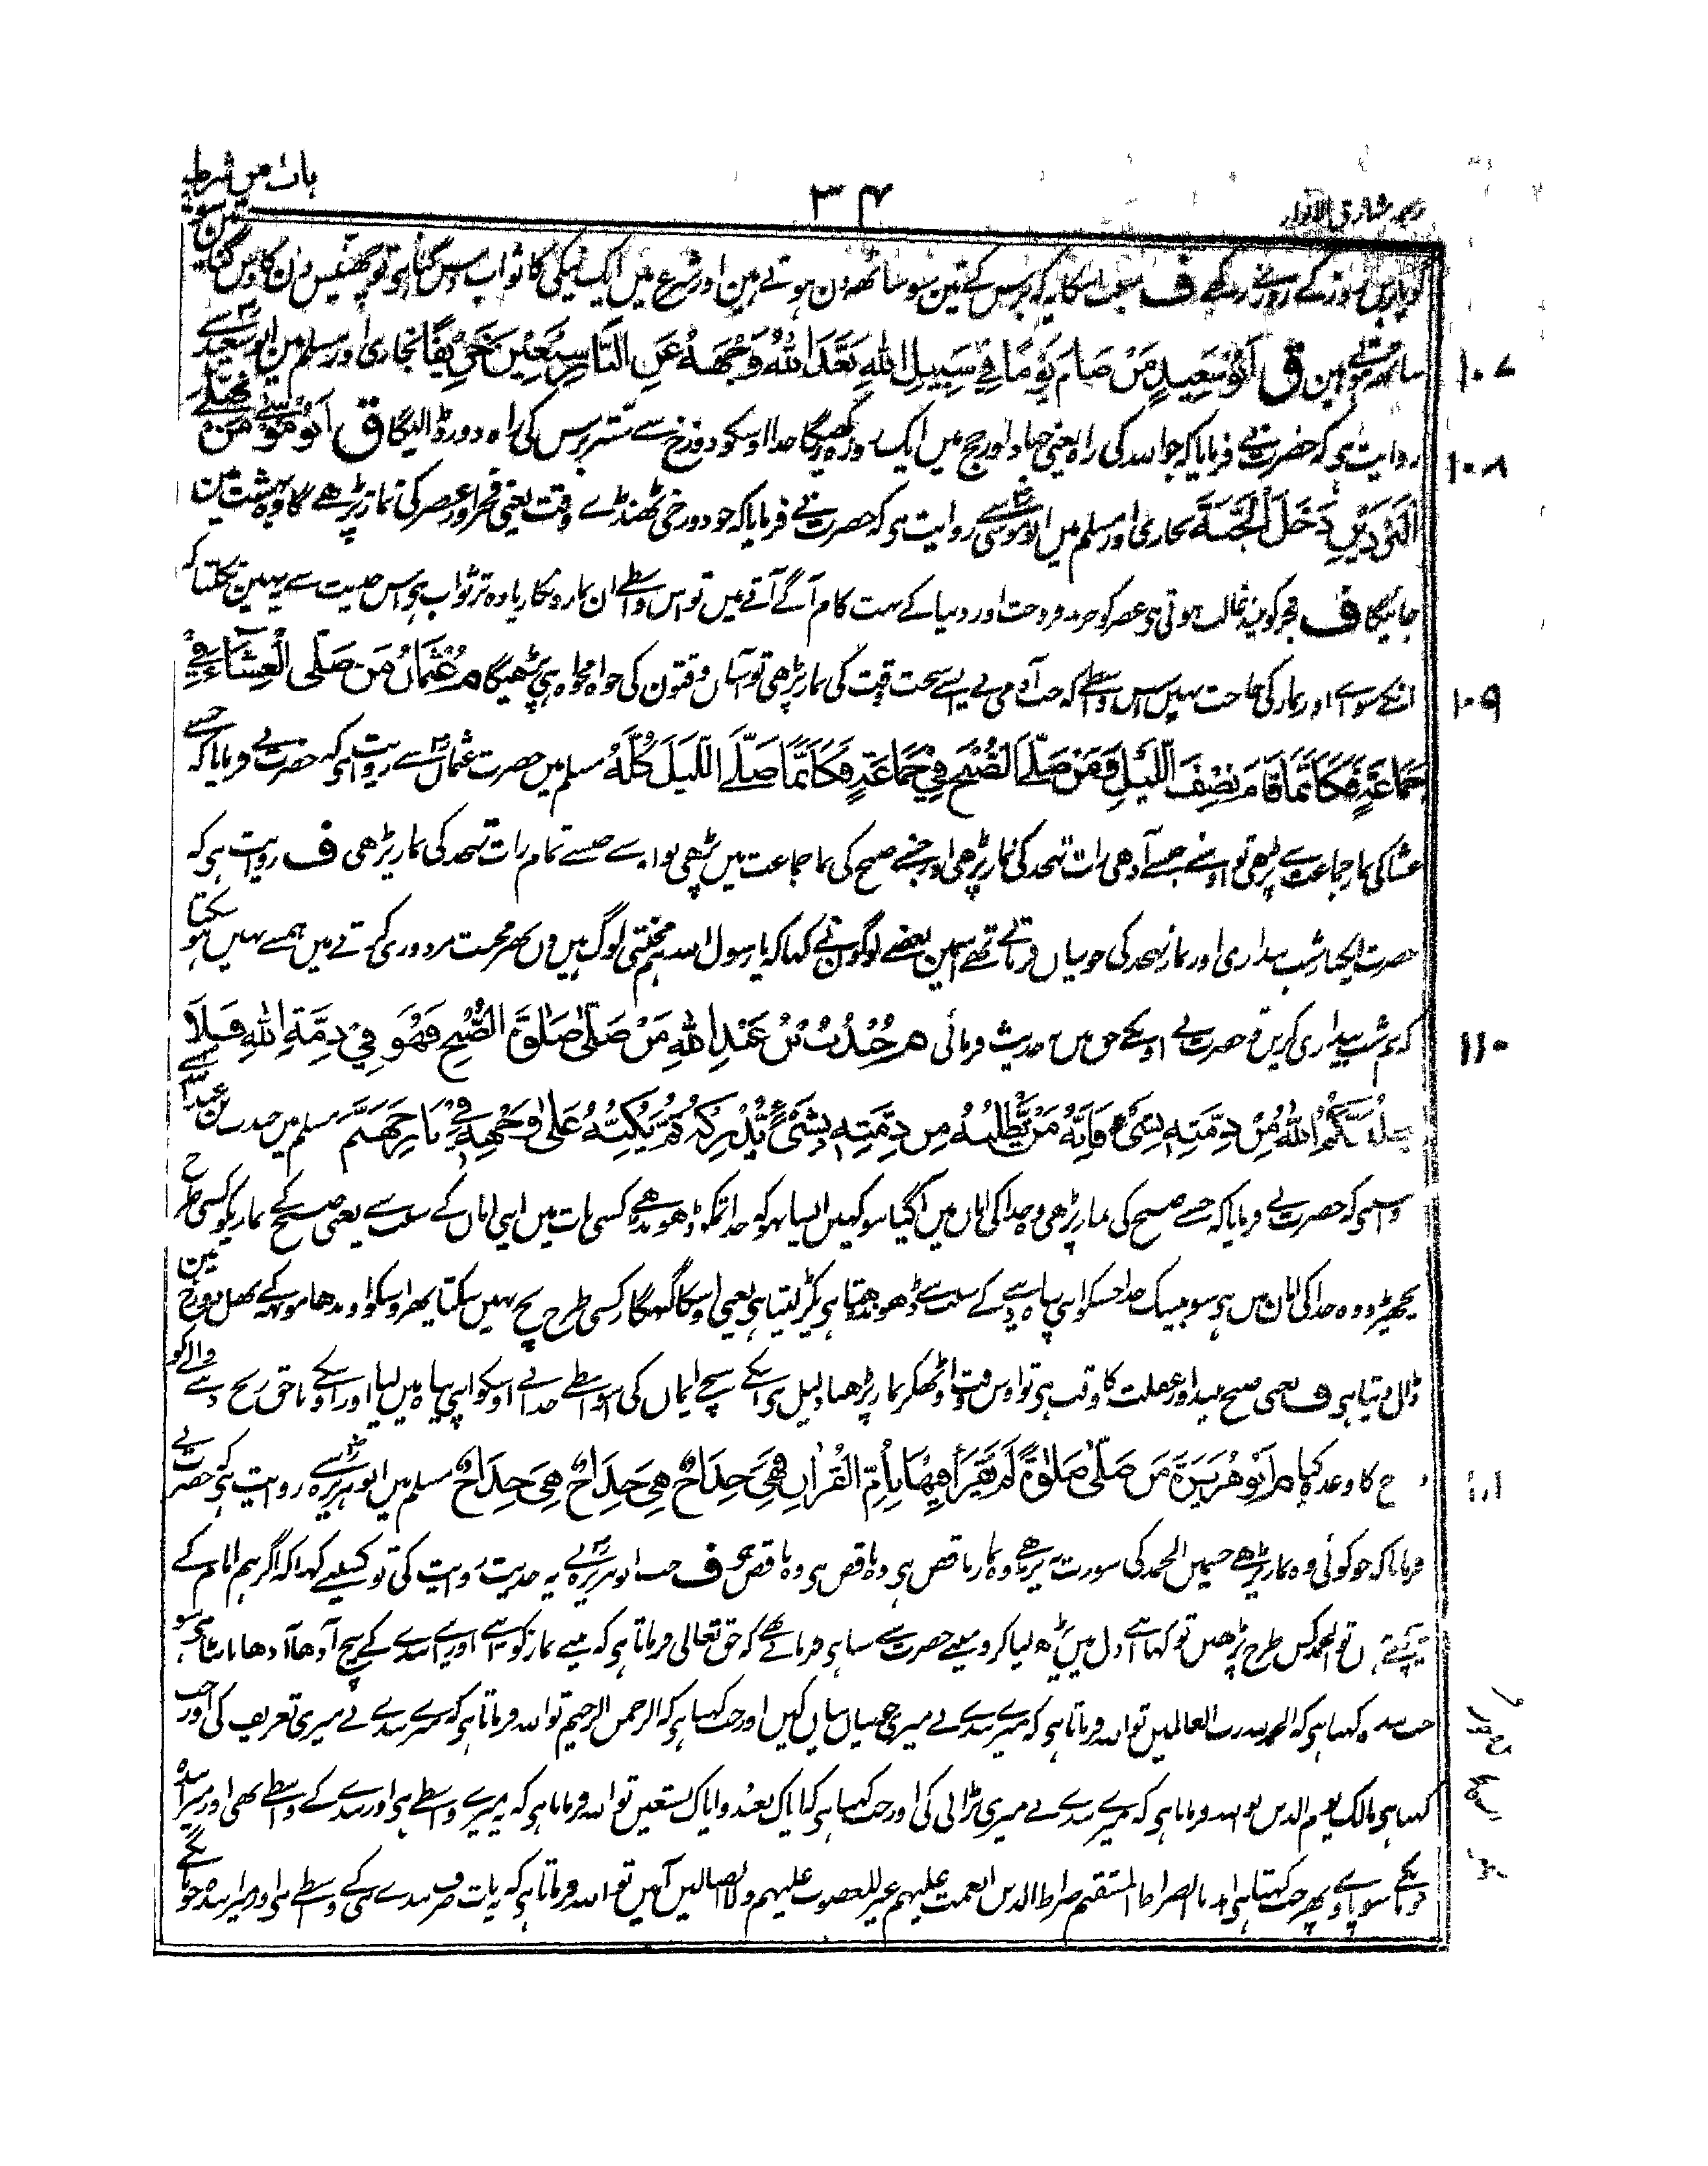 باب من شرطیہ
۳۴
ترجمہ مشارق الانوار
روزے رکھے ف سبب اسکا یہ کہ برس کے تین سو ساٹھ دن ہوتے ہیں اور شرع میں ایک نیکی کا ثواب دس گنا ہی تو چھتیس دن کا دس گنا تین سو
ساٹھ ہوئے ہین ق اَبُو سَعِیدٍ مَنْ صَامَ یَوْمًا فِي سَبِیلِ اللّٰهِ بَعَّدَ اللّٰهُ وَجْهَهُ عَنِ النَّارِ سَبْعِیْنَ خَرِیْفًا بخاری اور مسلم مین ابو سعید سے
۱۰۷
روایت ہی کہ حضرت نے فرمایا کہ جو اللہ کی راہ یعنی جہاد اور حج میں ایک روزہ رکھیگا خدا اوسکو دوزخ سے ستر برس کی راہ دور ڈالیگا ق اَبُو مُوْسٰی مَنْ صَلَّی
۱۰۸
الْبَرْدَیْنِ دَخَلَ الْجَنَّةَ بخاری اور مسلم میں ابو موسی سے روایت ہی کہ حضرت نے فرمایا کہ جو دو وقت ٹھنڈے وقت یعنی فجر اور عصر کی نماز پڑھے گا وہ بہشت مین
جائیگا ف فجر کو نیند غالب ہوتی ہی عصر کو خرید فروخت اور دنیا کے بہت کام آگے آتے ہیں تو اس واسطے ان نمازونکا زیادہ تر ثواب ہی اس حدیث سے یہ نہین نکلتا کہ
انکے سواے اور نماز کی حاجت نہیں اس واسطے کہ جب آدمی نے ایسے سخت وقت کی نماز پڑھی تو آسان وقتون کی خواہ مخواہ ہی پڑھیگا م عُثْمَانُ مَنْ صَلَّی الْعِشَاءَ فِيْ
۱۰۹
جَمَاعَةٍ فَكَاَنَّمَا قَامَ نِصْفَ اللَّیْلِ وَمَنْ صَلَّی الصُّبْحَ فِيْ جَمَاعَةٍ فَكَاَنَّمَا صَلَّی اللَّیْلَ كُلَّهُ مسلم میں حضرت عثمان سے روایت ہی کہ حضرت نے فرمایا کہ جسنے
عشا کی نماز جماعت سے پڑھی تو اوسنے جیسے آدھی رات تہجد کی نماز پڑھی اور جسنے صبح کی نماز جماعت میں پڑھی تو اوسنے جیسے تمام رات تہجد کی نماز پڑھی ف روایت ہی کہ
حضرت ایکبار شب بیداری اور نماز تہجد کی خوبیاں فرماتے تھے اسمین بعضے لوگون نے کہا کہ یا رسول اللہ ہم محنتی لوگ ہیں دن بھر محنت مزدوری کرتے ہیں ہمسے نہیں ہو سکتا
کہ ہم شب بیداری کریں تو حضرت نے اونکے حق میں یہ حدیث فرمائی م جُنْدُبُ بْنُ عَبْدِ اللّٰهِ مَنْ صَلّٰی صَلٰوةَ الصُّبْحِ فَهُوَ فِيْ ذِمَّةِ اللّٰهِ فَلَا
۱۱۰
یَطْلُبَنَّكُمُ اللّٰهُ مِنْ ذِمَّتِهِ بِشَيْءٍ فَاِنَّهُ مَنْ یَّطْلُبْهُ مِنْ ذِمَّتِهِ بِشَيْءٍ یُّدْرِكْهُ ثُمَّ یَكُبُّهُ عَلٰی وَجْهِهِ فِيْ نَارِ جَهَنَّمَ مسلم میں جندب بن عبد اللہ سے
روایت ہی کہ حضرت نے فرمایا کہ جسنے صبح کی نماز پڑھی وہ خدا کی امان میں آگیا سو کہیں ایسا نہو کہ خدا تمکو ڈھونڈھے کسی بات میں اپنی امان کے سبب سے یعنی صبح کے نمازیکو کسی طرح
نچھیڑو وہ خدا کی امان میں ہی سو بیشک خدا جسکو اپنی پناہ دینے کے سبب سے ڈھونڈھتا ہی پکڑ لیتا ہی یعنی اوسکا گنہگار کسی طرح بچ نہیں سکتا پھر اوسکو اوندھا مونہہ کے بھل دوزخ مین
ڈال دیتا ہی ف یعنی صبح نیند اور غفلت کا وقت ہی تو اوس وقت اوٹھکر نماز پڑھنا دلیل ہی اسکے سچے ایمان کی اسواسطے خدا نے اوسکو اپنی پناہ میں لیا اور اسکے ناحق رنج دینے والے کو
دوزخ کا وعدہ کیا م اَبُو هُرَیْرَةَ مَنْ صَلّٰی صَلٰوةً لَمْ یَقْرَأْ فِیْهَا بِاُمِّ الْقُرْاٰنِ فَهِيَ خِدَاجٌ هِيَ خِدَاجٌ هِيَ خِدَاجٌ مسلم میں ابو ہریرہ سے روایت ہی کہ حضرت نے
۱۱۱
فرمایا کہ جو کوئی وہ نماز پڑھے جسمیں الحمد کی سورت نہ پڑھے وہ نماز ناقص ہی وہ ناقص ہی وہ ناقص ہی ف جب ابو ہریرہ نے یہ حدیث روایت کی تو کسینے کہا کہ اگر ہم امام کے
پیچھے ہوں تو الحمد کس طرح پڑھیں تو کہا اپنے دل میں پڑھ لیا کرو مینے حضرت سے سنا ہی فرماتے تھے کہ حق تعالی فرماتا ہی کہ مینے نماز کو اپنے اور اپنے بندے کے بیچ آدھا آدھا بانٹا ہی سو
جب بندہ کہتا ہی کہ الحمد للہ رب العالمین تو اللہ فرماتا ہی کہ میرے بندے نے میری خوبیاں بیاں کیں اور جب کہتا ہی کہ الرحمن الرحیم تو اللہ فرماتا ہی کہ میرے بندے نے میری تعریف کی اور جب
کہتا ہی مالک یوم الدین تو اللہ فرماتا ہی کہ میرے بندے نے میری بڑائی کی اور جب کہتا ہی کہ ایاک نعبد و ایاک نستعین تو اللہ فرماتا ہی کہ یہ میرے واسطے ہی اور بندے کے واسطے بھی اور میرا بندہ
جو مانگے سو پاوے پھر جب کہتا ہی اہدنا الصراط المستقیم صراط الذین انعمت علیہم غیر المغضوب علیہم ولا الضالین آمین تو اللہ فرماتا ہی کہ یہ بات صرف بندے ہی کے واسطے ہی اور میرا بندہ جو مانگے